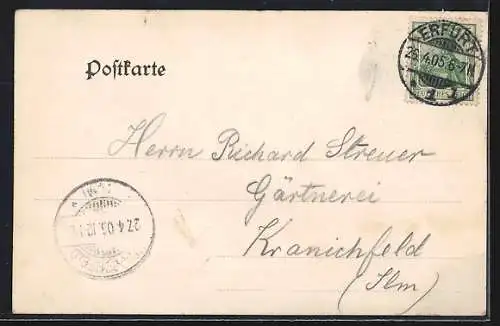 Postkarte
ERFURT
26.4.05.6-7N
Herrn Richard Streuer
Gärtnerei
Kranichfeld
(Ilm)
27.4.05.